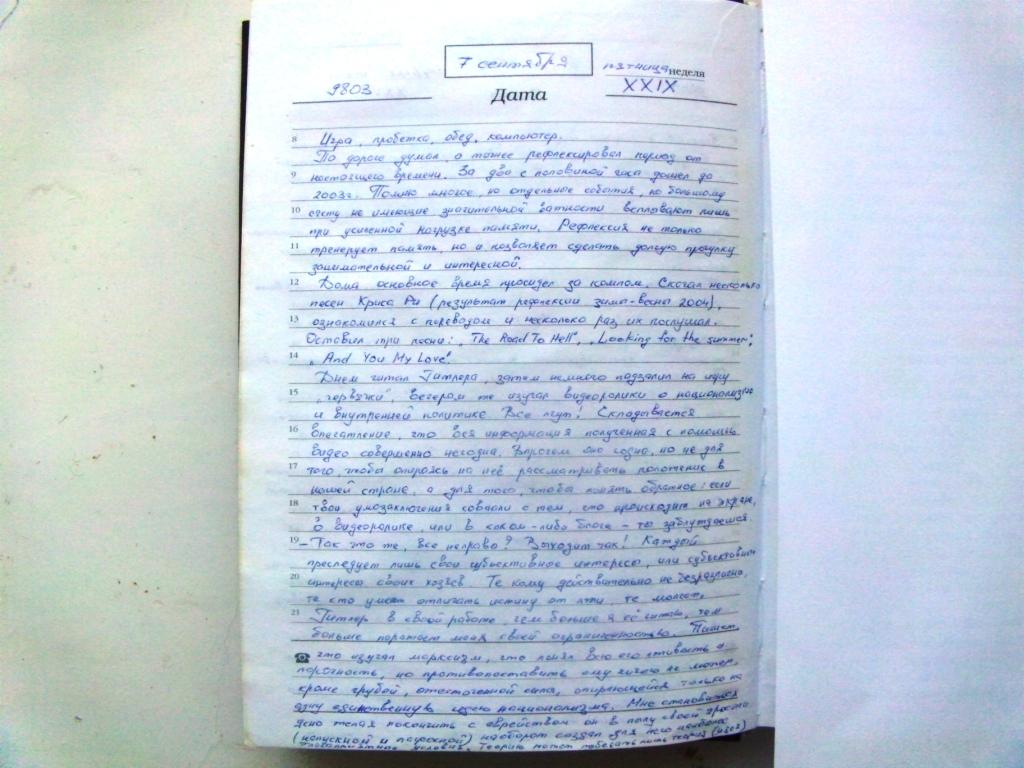 7 сентября
пятница неделя
9803
XXIX
Дата
8 Игра, пробежка, обед, компьютер.
По дороге думал, а точнее рефлексировал период от
9 настоящего времени. За два с половиной часа дошел до
2003г. Помню многое, но отдельные события, по большому
10 счету не имеющие значительной важности всплывают лишь
при усиленной нагрузке памяти. Рефлексия не только
11 тренерует память, но и позволяет сделать долгую прогулку
занимательной и интересной.
12 Дома основное время просидел за компом. Скачал несколько
песен Криса Ри (результат рефлексии зима-весна 2004),
13 ознакомился с переводом и несколько раз их послушал.
Оставил три песни: „The Road To Hell", „Looking for the summer",
14 „And You My Love".
Днем читал Гитлера, затем немного на игру
15 „червячки". Вечером же изучал видеоролики о национализме
и внутренней политике. Все лгут! Складывается
16 впечатление, что вся информация полученная с помощью
видео совершенно негодна. Впрочем она годна, но не для
17 того, чтобы опираясь на неё рассматривать положение в
нашей стране, а для того, чтобы понять обратное: если
18 твои умозаключения совпали с тем, что происходит на экране,
в видеоролике, или в каком-либо блоге - ты заблуждаешся.
19 - Так что же, все неправы? Выходит так! Каждый
преследует лишь свои субъективные интересы, или субъективные
20 интересы своих хозяев. Те кому действительно не безразлично,
те кто умеет отличать истину от лжи, те молчат.
21 Гитлер в своей работе, чем больше я её читаю, тем
больше поражает меня своей ограниченностью. Пишет,
что изучал марксизм, что понял всю его лживость и
порочность, но противопоставить ему ничего не может,
кроме грубой, ожесточенной силы, опирающейся только на
одну единственную идею национализма. Мне становится
ясно желая покончить с еврейством он в пылу своей ярости
наоборот создал для него наиболее
условия. Теорию может победить лишь теория (идея)